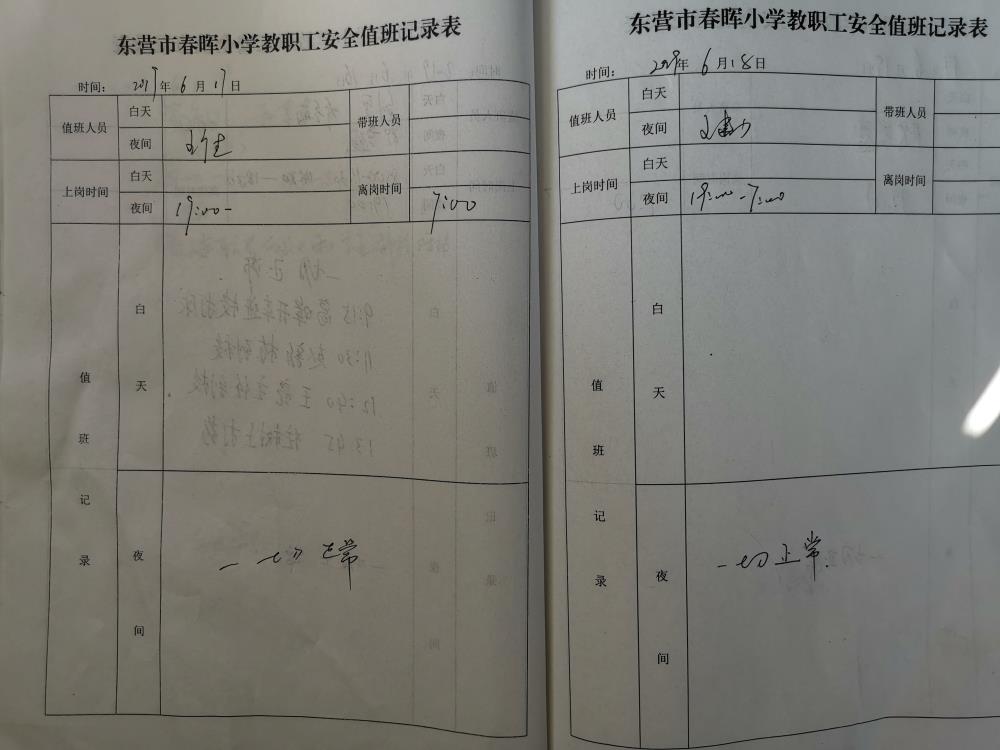 东营市春晖小学教职工安全值班记录表
时间： 2019年 6 月 17 日
值班人员 白天 带班人员
夜间
上岗时间 白天 离岗时间
夜间 19:00- 7:00
值班记录
白天
夜间 一切正常
东营市春晖小学教职工安全值班记录表
时间： 2019年 6 月 18 日
值班人员 白天 带班人员
夜间
上岗时间 白天 离岗时间
夜间 19:00-7:00
值班记录
白天
夜间 一切正常.